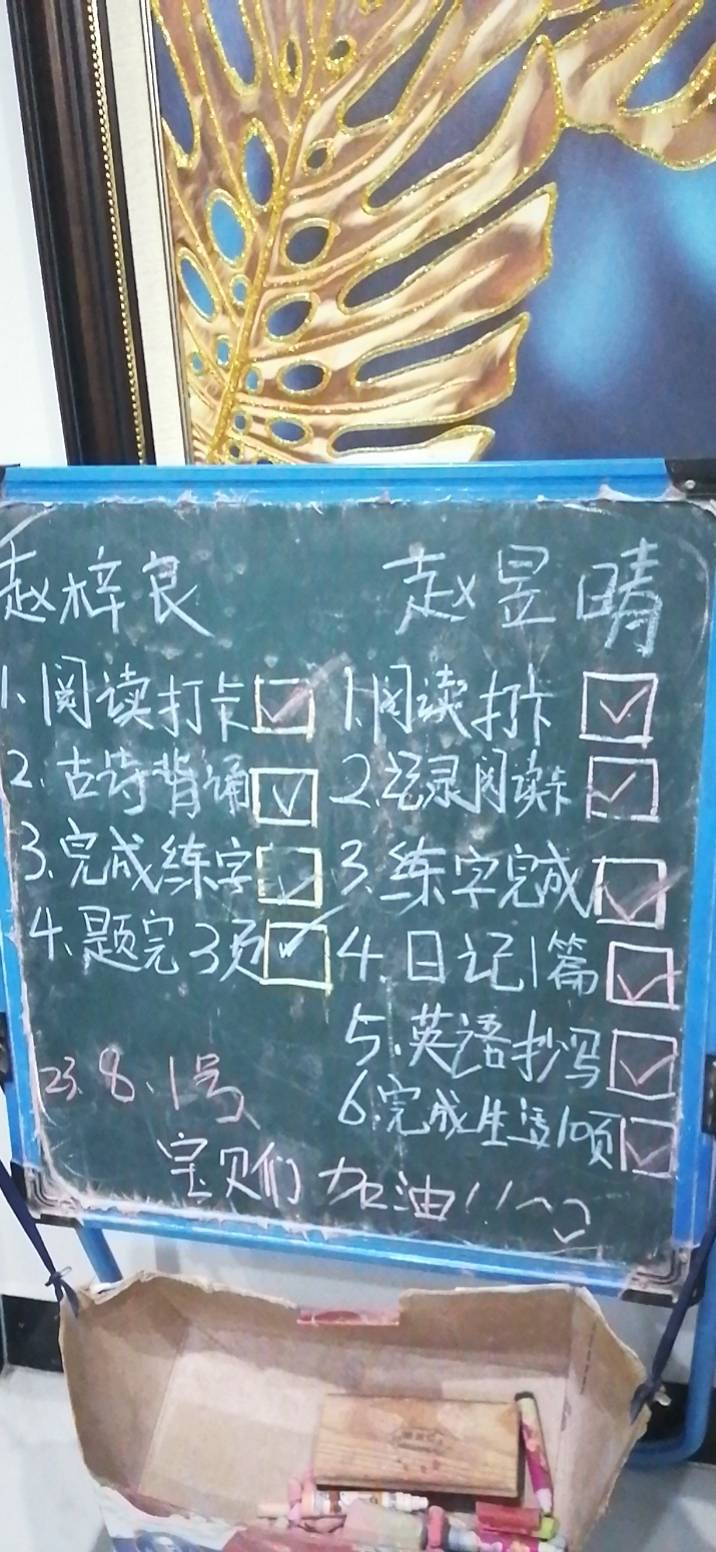 赵梓良
1.阅读打卡
2.古诗背诵
3.完成练字
4.题完3页
赵昱晴
1.阅读打卡
2.记录阅读卡
3.练字完成
4.日记1篇
5.英语抄写
6.完成生活10页
23.8.1号
宝贝们加油!!